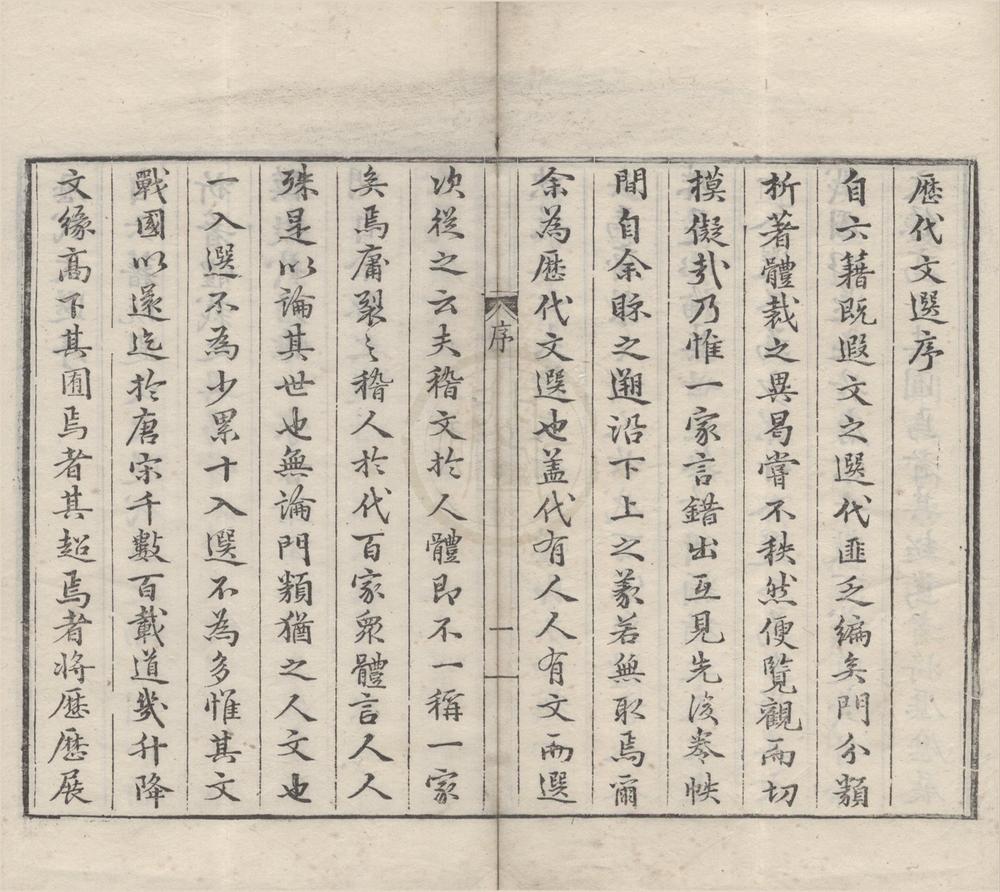 歷代文選序
自六籍既遐文之選代匪乏編矣門分類
析著體裁之異曷嘗不秩然便覽觀而切
模儗㢤乃惟一家言錯出互見先後卷帙
間自余睩之遡沿下上之義若無取焉爾
余為歷代文選也盖代有人人有文而選
序
一
次從之云夫稽文於人體即不一稱一家
矣焉庸裂之稽人於代百家衆體言人人
殊是以論其世也無論門類猶之人文也
一入選不為少累十入選不為多惟其文
戰國以還迄於唐宋千數百載道幾升降
文緣高下其囿焉者其超焉者將歷歷展